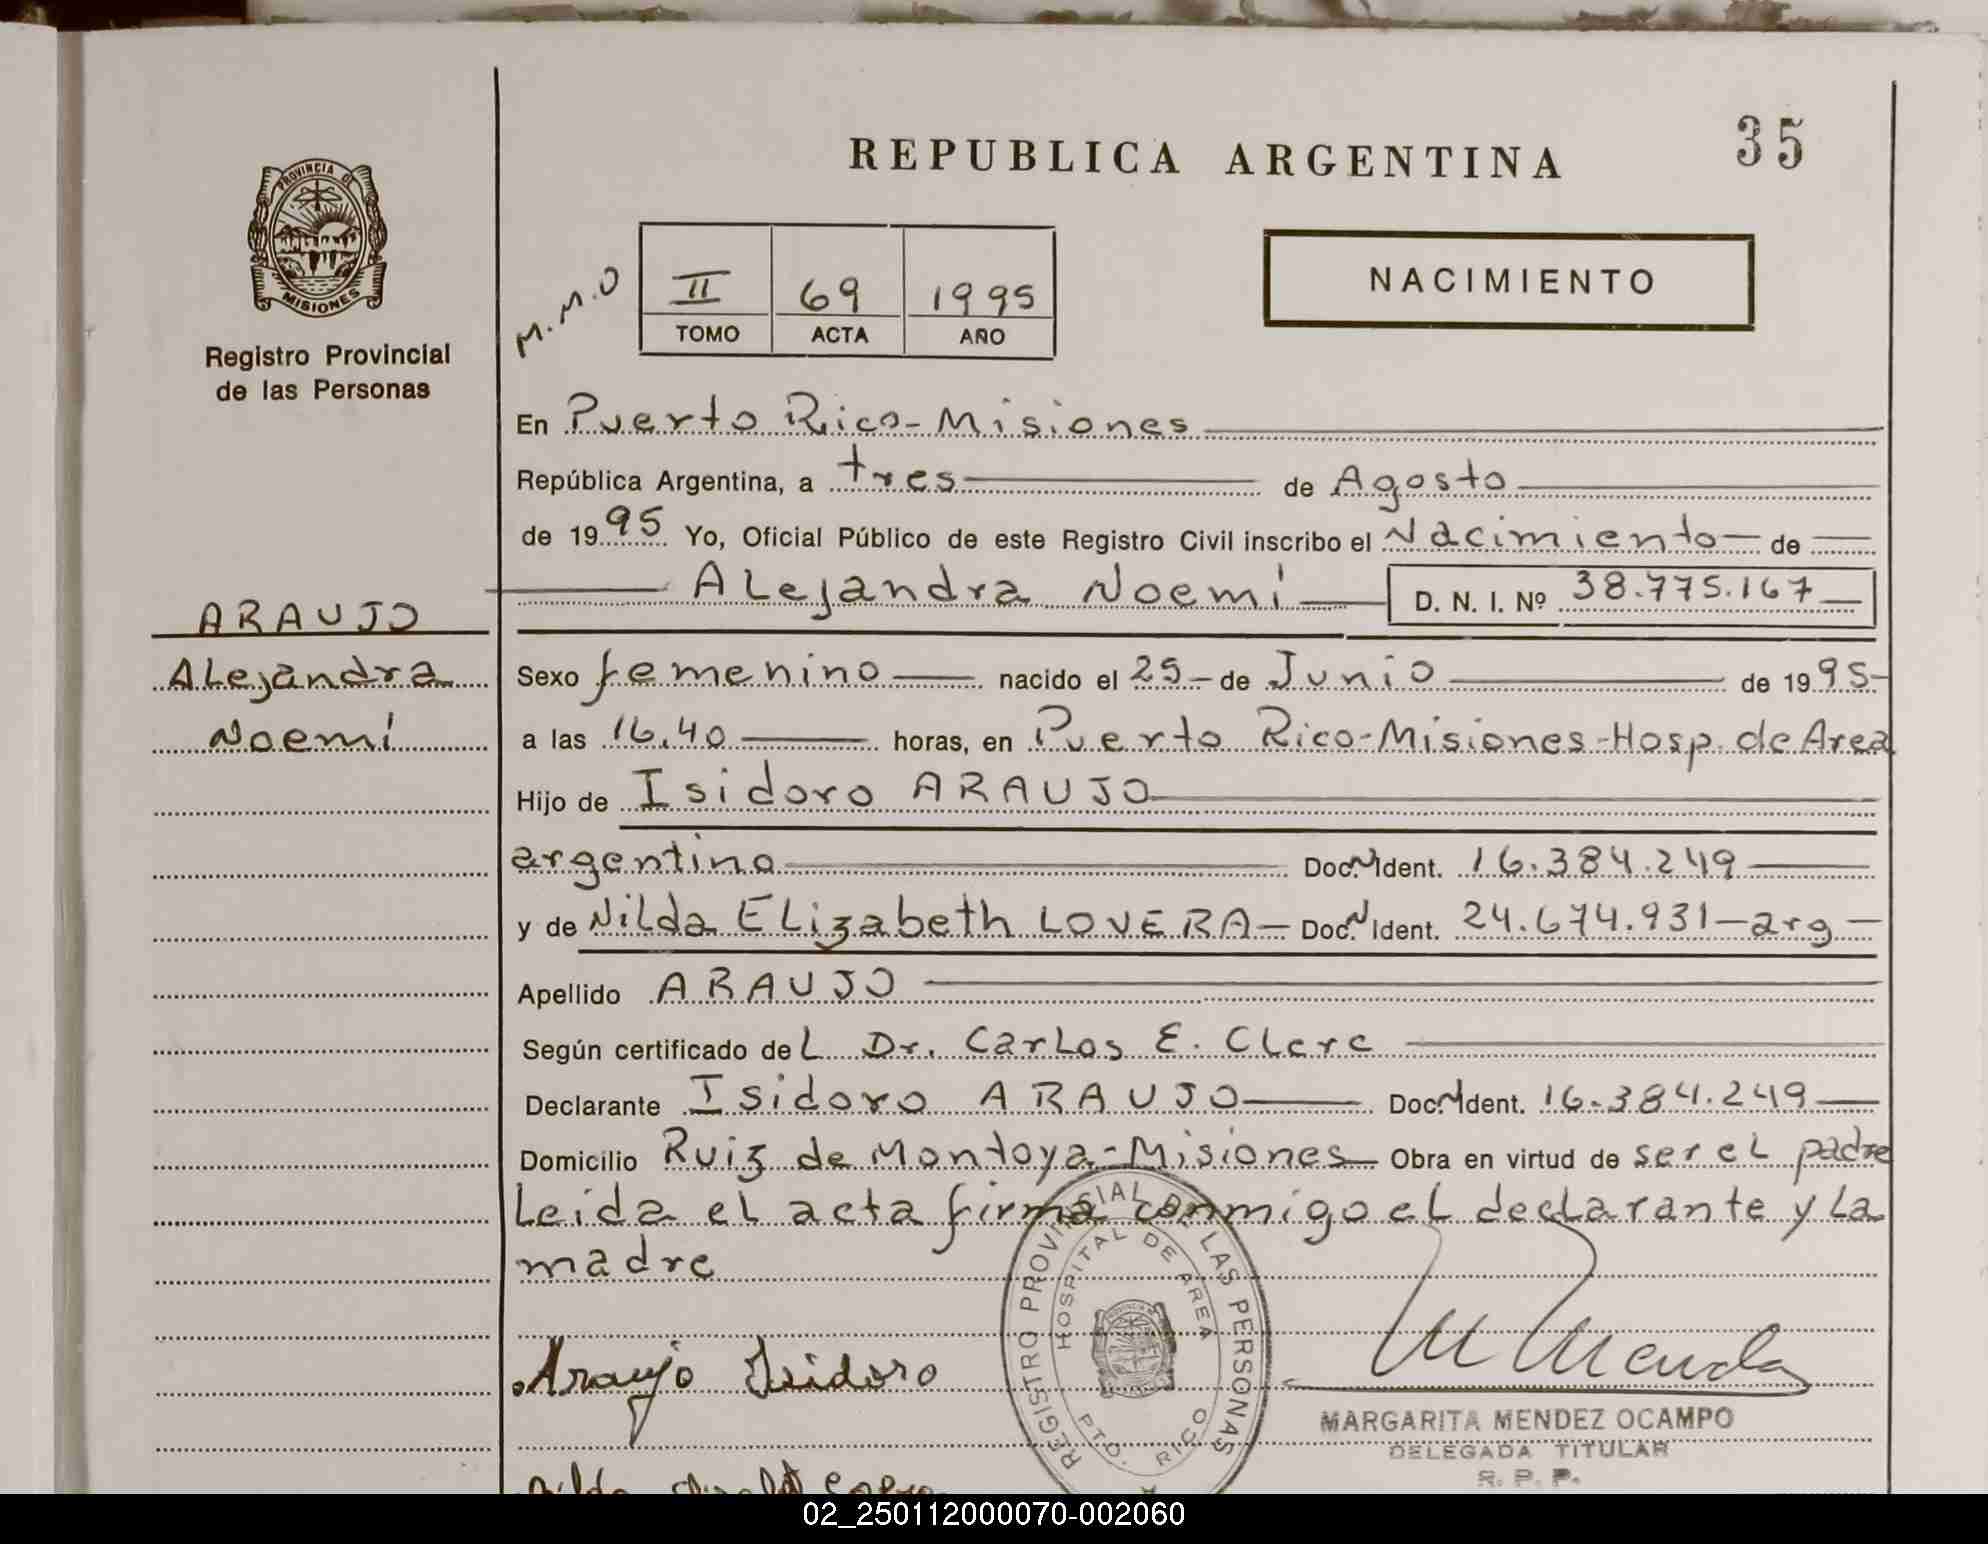 35
REPUBLICA ARGENTINA
PROVINCIA DE
MISIONES
Registro Provincial
de las Personas
M.M.O
II 69 1995
TOMO ACTA AÑO
NACIMIENTO
En Puerto Rico-Misiones
República Argentina, a tres de Agosto
de 1995 Yo, Oficial Público de este Registro Civil inscribo el Nacimiento de
Alejandra Noemí D. N. I. Nº 38.775.167
ARAUJO
Alejandra
Noemí
Sexo femenino nacido el 25 de Junio de 1995
a las 16.40 horas, en Puerto Rico-Misiones-Hosp. de Area
Hijo de Isidoro ARAUJO
argentino Doc. N Ident. 16.384.249
y de Nilda Elizabeth LOVERA Doc. N Ident. 24.674.931-arg
Apellido ARAUJO
Según certificado del Dr. Carlos E. Clerc
Declarante Isidoro ARAUJO Doc. N Ident. 16.384.249
Domicilio Ruiz de Montoya-Misiones Obra en virtud de ser el padre
Leida el acta firma conmigo el declarante y la
madre
REGISTRO PROVINCIAL DE LAS PERSONAS
HOSPITAL DE AREA
PTO. RICO
Araujo Isidoro
M Mendez
MARGARITA MENDEZ OCAMPO
DELEGADA TITULAR
R. P. P.
02_250112000070-002060